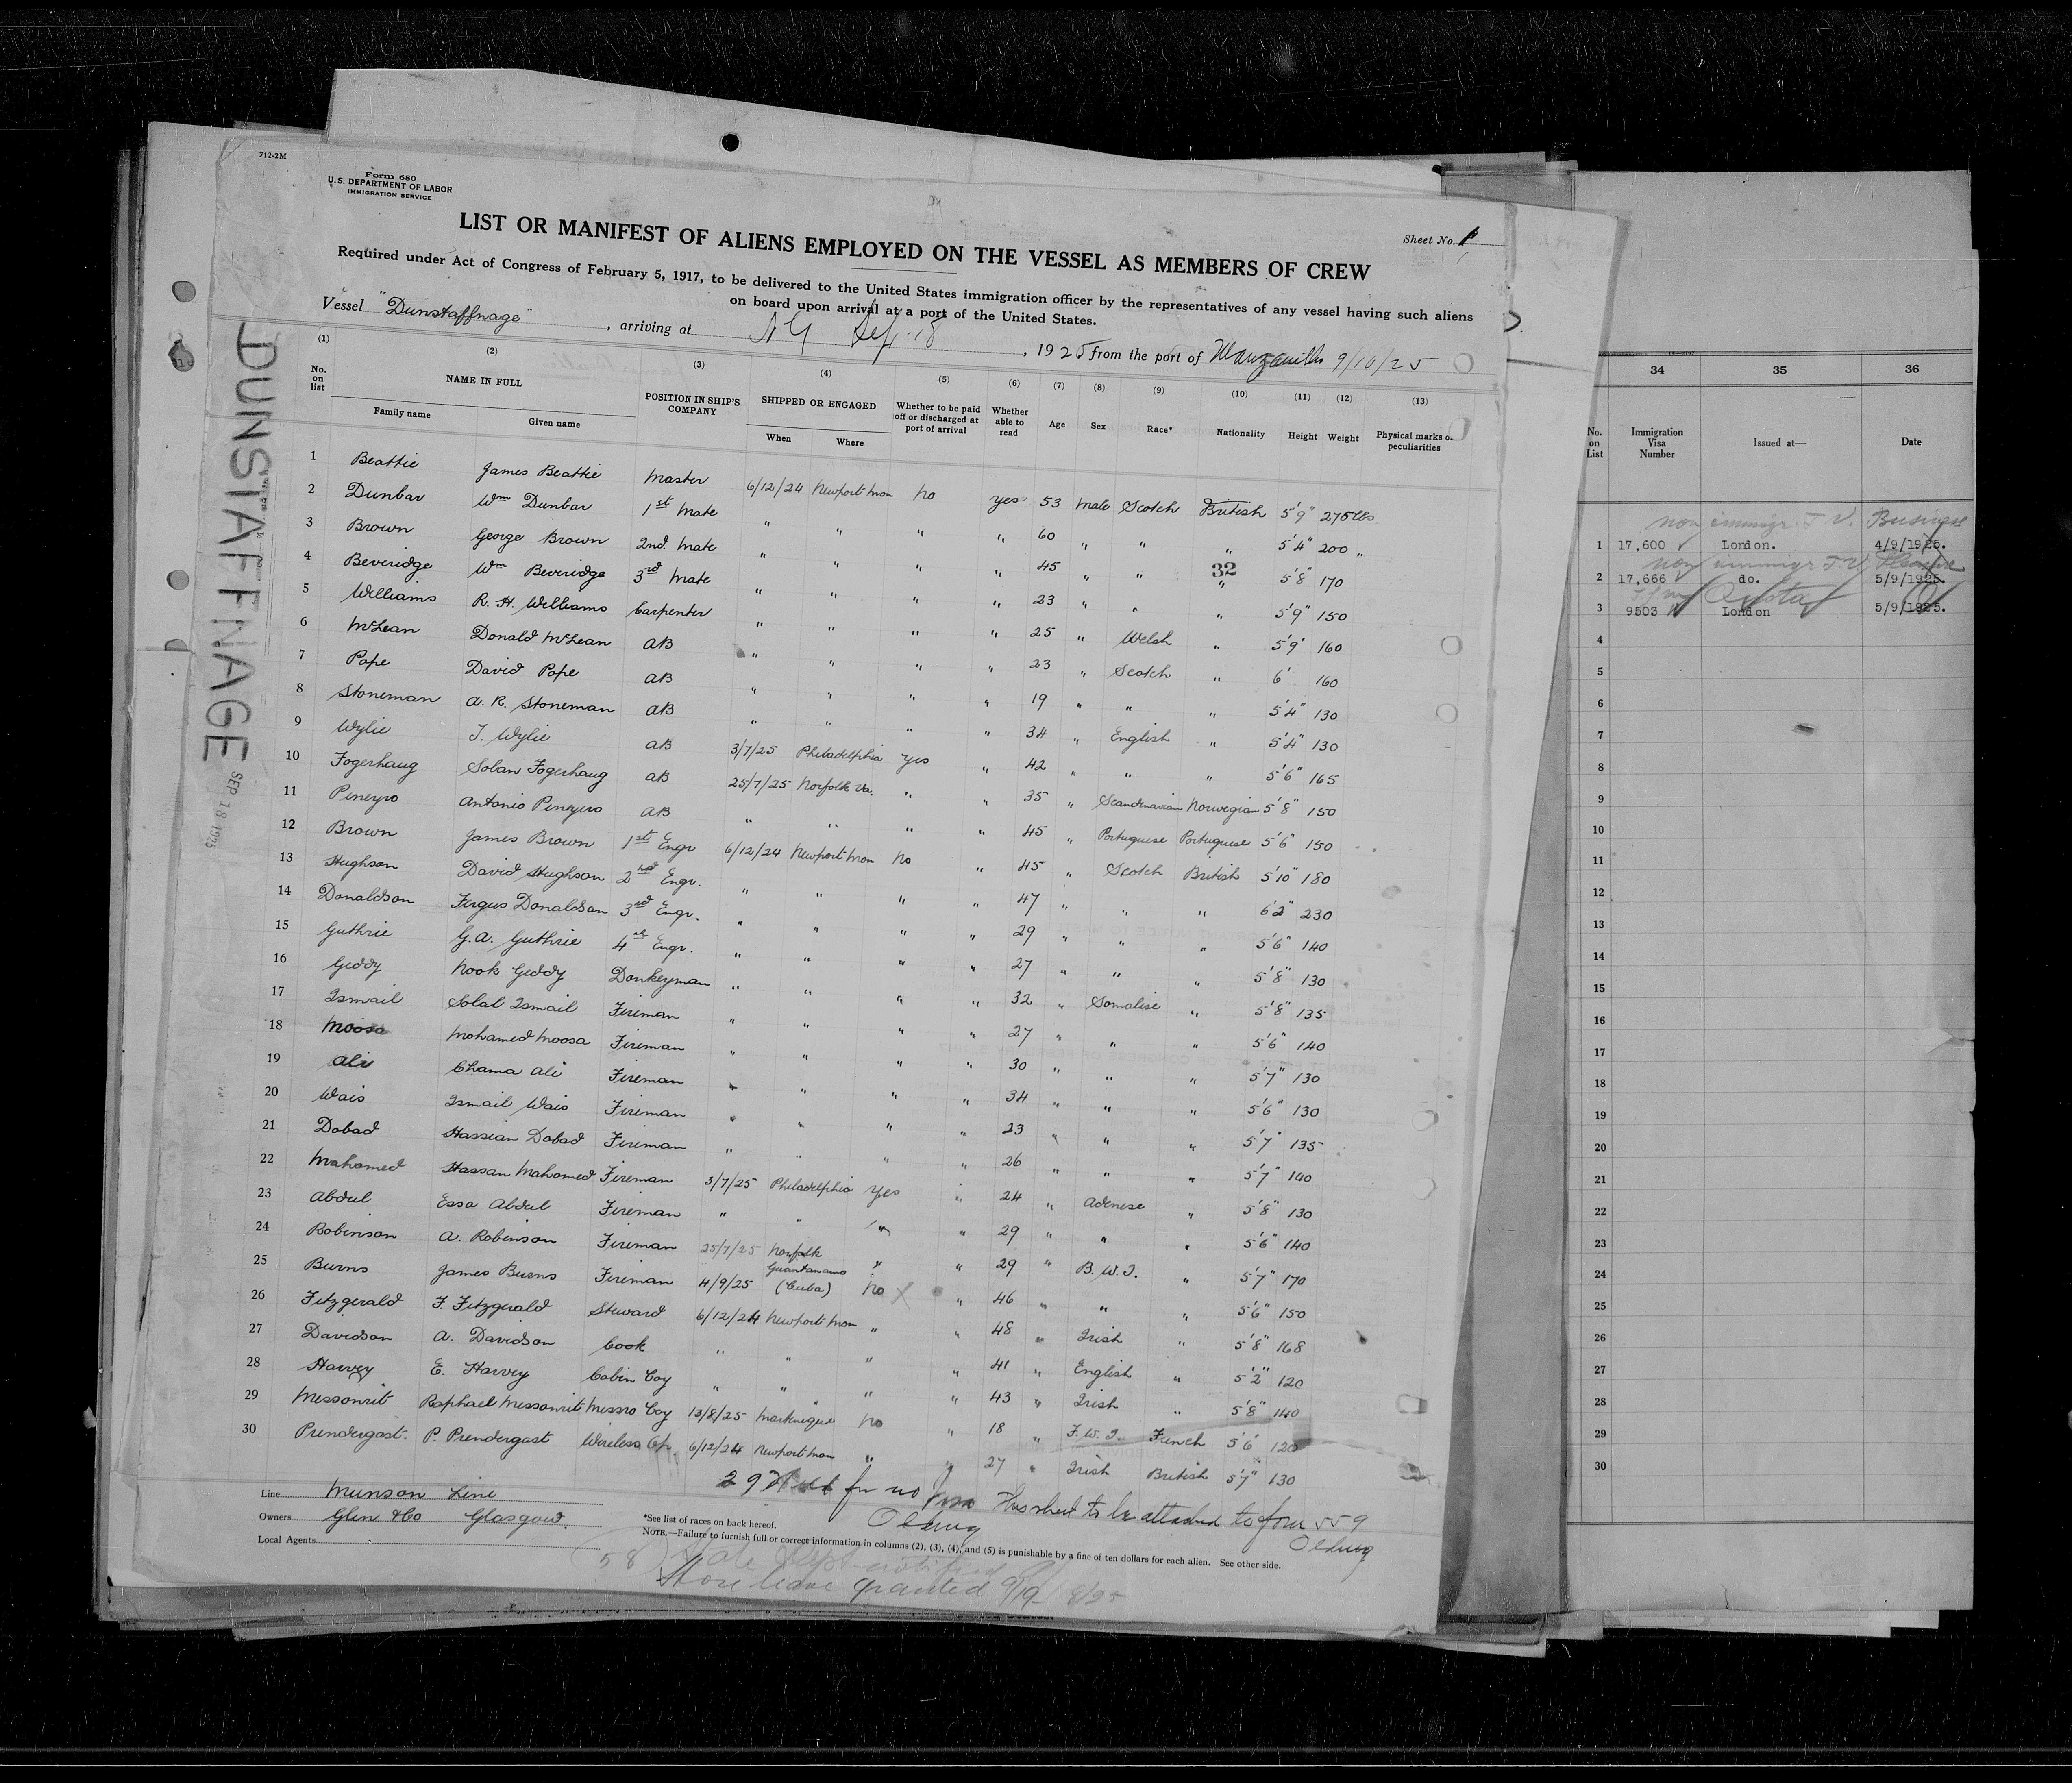 712-2M
Form 680
U.S. DEPARTMENT OF LABOR
IMMIGRATION SERVICE
Sheet No. 1
LIST OR MANIFEST OF ALIENS EMPLOYED ON THE VESSEL AS MEMBERS OF CREW
Required under Act of Congress of February 5, 1917, to be delivered to the United States immigration officer by the representatives of any vessel having such aliens
on board upon arrival at a port of the United States.
Vessel "Dunstaffnage", arriving at Sep 18, 1925 from the port of Manzanillo 9/10/25
DUNSTAFFNAGE
SEP 18 1925
(1) (2) (3) (4) (5) (6) (7) (8) (9) (10) (11) (12) (13)
No. on list NAME IN FULL POSITION IN SHIP'S COMPANY SHIPPED OR ENGAGED Whether to be paid off or discharged at port of arrival Whether able to read Age Sex Race* Nationality Height Weight Physical marks or peculiarities
Family name Given name When Where
1 Beattie James Beattie Master 6/12/24 Newport Mon No yes 53 Male Scotch British 5'9" 275 lbs
2 Dunbar Wm Dunbar 1st Mate " " " " 60 " " " 5'4" 200 "
3 Brown George Brown 2nd Mate " " " " 45 " " 32 " 5'8" 170
4 Beveridge Wm Beveridge 3rd Mate " " " " 23 " " " 5'9" 150
5 Williams R. H. Williams Carpenter " " " " 25 " Welsh " 5'9" 160
6 McLean Donald McLean AB " " " " 23 " Scotch " 6' 160
7 Pope David Pope AB " " " " 19 " " " 5'4" 130
8 Stoneman A. R. Stoneman AB " " " " 34 " English " 5'4" 130
9 Wylie J. Wylie AB 3/7/25 Philadelphia yes " 42 " " " 5'6" 165
10 Fogerhaug Solan Fogerhaug AB 25/7/25 Norfolk Va. " " 35 " Scandinavian Norwegian 5'8" 150
11 Pineyro Antonio Pineyro AB " " " " 45 " Portuguese Portuguese 5'6" 150
12 Brown James Brown 1st Engr 6/12/24 Newport Mon No " 45 " Scotch British 5'10" 180
13 Hughson David Hughson 2nd Engr. " " " " 47 " " " 6'2" 230
14 Donaldson Fergus Donaldson 3rd Engr. " " " " 29 " " " 5'6" 140
15 Guthrie G.A. Guthrie 4th Engr. " " " " 27 " " " 5'8" 130
16 Geddy Nook Geddy Donkeyman " " " " 32 " Somalise " 5'8" 135
17 Ismail Solal Ismail Fireman " " " " 27 " " " 5'6" 140
18 Moosa Mohamed Moosa Fireman " " " " 30 " " " 5'7" 130
19 Ali Chama Ali Fireman " " " " 34 " " " 5'6" 130
20 Wais Ismail Wais Fireman " " " " 23 " " " 5'7" 135
21 Dobad Hassian Dobad Fireman " " " " 26 " " " 5'7" 140
22 Mahomed Hassan Mahomed Fireman 3/7/25 Philadelphia yes " 24 " Adenese " 5'8" 130
23 Abdul Essa Abdul Fireman " " " " 29 " " " 5'6" 140
24 Robinson A. Robinson Fireman 25/7/25 Norfolk " " 29 " B.W.I. " 5'7" 170
25 Burns James Burns Fireman 4/9/25 Guantanamo (Cuba) No X " 46 " " " 5'6" 150
26 Fitzgerald F. Fitzgerald Steward 6/12/24 Newport Mon " " 48 " Irish " 5'8" 168
27 Davidson A. Davidson Cook " " " " 41 " English " 5'2" 120
28 Harvey E. Harvey Cabin Boy " " " " 43 " Irish " 5'8" 140
29 Messonrit Raphael Messonrit Messro Boy 13/8/25 Martinique No " 18 " F.W.I. French 5'6" 120
30 Prendergast P. Prendergast Wireless Op. 6/12/24 Newport Mon " " 27 " Irish British 5'7" 130
29 for no This sheet to be attached to form 559
Line Munson Line
Owners Glen & Co Glasgow.
Local Agents
*See list of races on back hereof.
NOTE.—Failure to furnish full or correct information in columns (2), (3), (4), and (5) is punishable by a fine of ten dollars for each alien. See other side.
58
Shore leave granted 9/19
34 35 36
No. on List Immigration Visa Number Issued at— Date
non immigr. T.V. Business
1 17,600 London. 4/9/1925.
non immigr T.V.
2 17,666 do. 5/9/1925.
3 9503 London 5/9/1925.
4
5
6
7
8
9
10
11
12
13
14
15
16
17
18
19
20
21
22
23
24
25
26
27
28
29
30